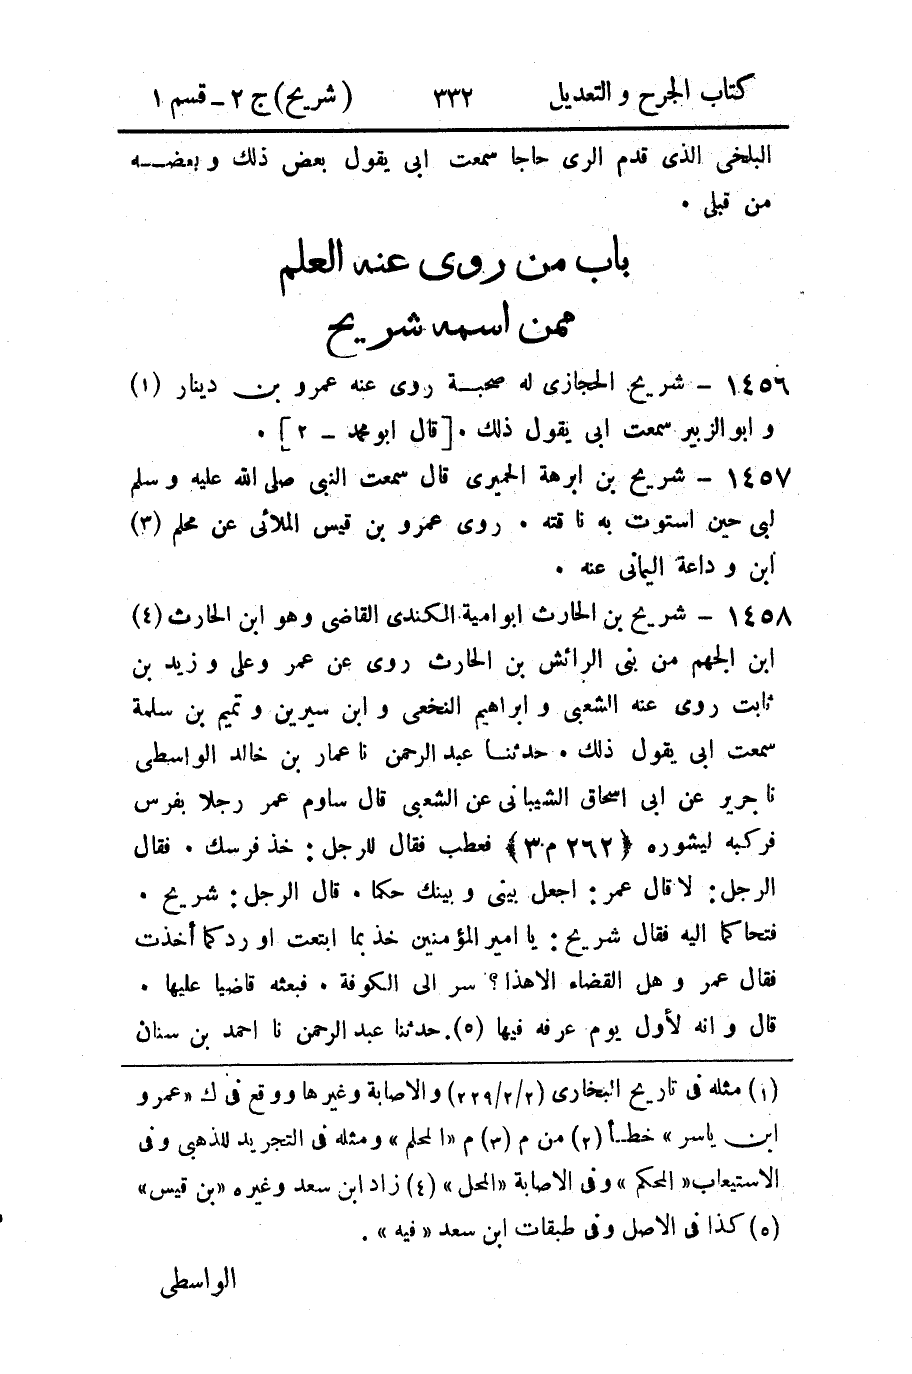 كتاب الجرح و التعديل ٣٣٢ (شريح) ج ٢ - قسم ١
البلخى الذى قدم الرى حاجا سمعت ابى يقول بعض ذلك و بعضـــه
من قبلى .
باب من روى عنه العلم
ممن اسمه شريح
١٤٥٦ - شريح الحجازى له صحبة روى عنه عمرو بن دينار (١)
و ابو الزبير سمعت ابى يقول ذلك . [قال ابو محمد - ٢] .
١٤٥٧ - شريح بن ابرهة الحميرى قال سمعت النبى صلى الله عليه و سلم
لبى حين استوت به ناقته . روى عمرو بن قيس الملائى عن محلم (٣)
ابن و داعة اليمانى عنه .
١٤٥٨ - شريح بن الحارث ابو امية الكندى القاضى وهو ابن الحارث (٤)
ابن الجهم من بنى الرائش بن الحارث روى عن عمر وعلى و زيد بن
ثابت روى عنه الشعبى و ابراهيم النخعى و ابن سيرين و تميم بن سلمة
سمعت ابى يقول ذلك . حدثنا عبد الرحمن نا عمار بن خالد الواسطى
نا جرير عن ابى اسحاق الشيبانى عن الشعبى قال ساوم عمر رجلا بفرس
فركبه ليشوره ﴿٢٦٢ م ٣﴾ فعطب فقال للرجل : خذ فرسك . فقال
الرجل : لا قال عمر : اجعل بينى و بينك حكما . قال الرجل : شريح .
فتحاكما اليه فقال شريح : يا امير المؤمنين خذ بما ابتعت او رد كما أخذت
فقال عمر و هل القضاء الا هذا ؟ سر الى الكوفة . فبعثه قاضيا عليها .
قال و انه لأول يوم عرفه فيها (٥). حدثنا عبد الرحمن نا احمد بن سنان
(١) مثله فى تاريخ البخارى (٢/٢/٢٢٩) والاصابة وغيرها ووقع فى ك «عمرو
ابن ياسر» خطأ (٢) من م (٣) م «المحلم» ومثله فى التجريد للذهبى وفى
الاستيعاب «المحكم» وفى الاصابة «المحل» (٤) زاد ابن سعد وغيره «بن قيس»
(٥) كذا فى الاصل وفى طبقات ابن سعد «فيه» .
الواسطى